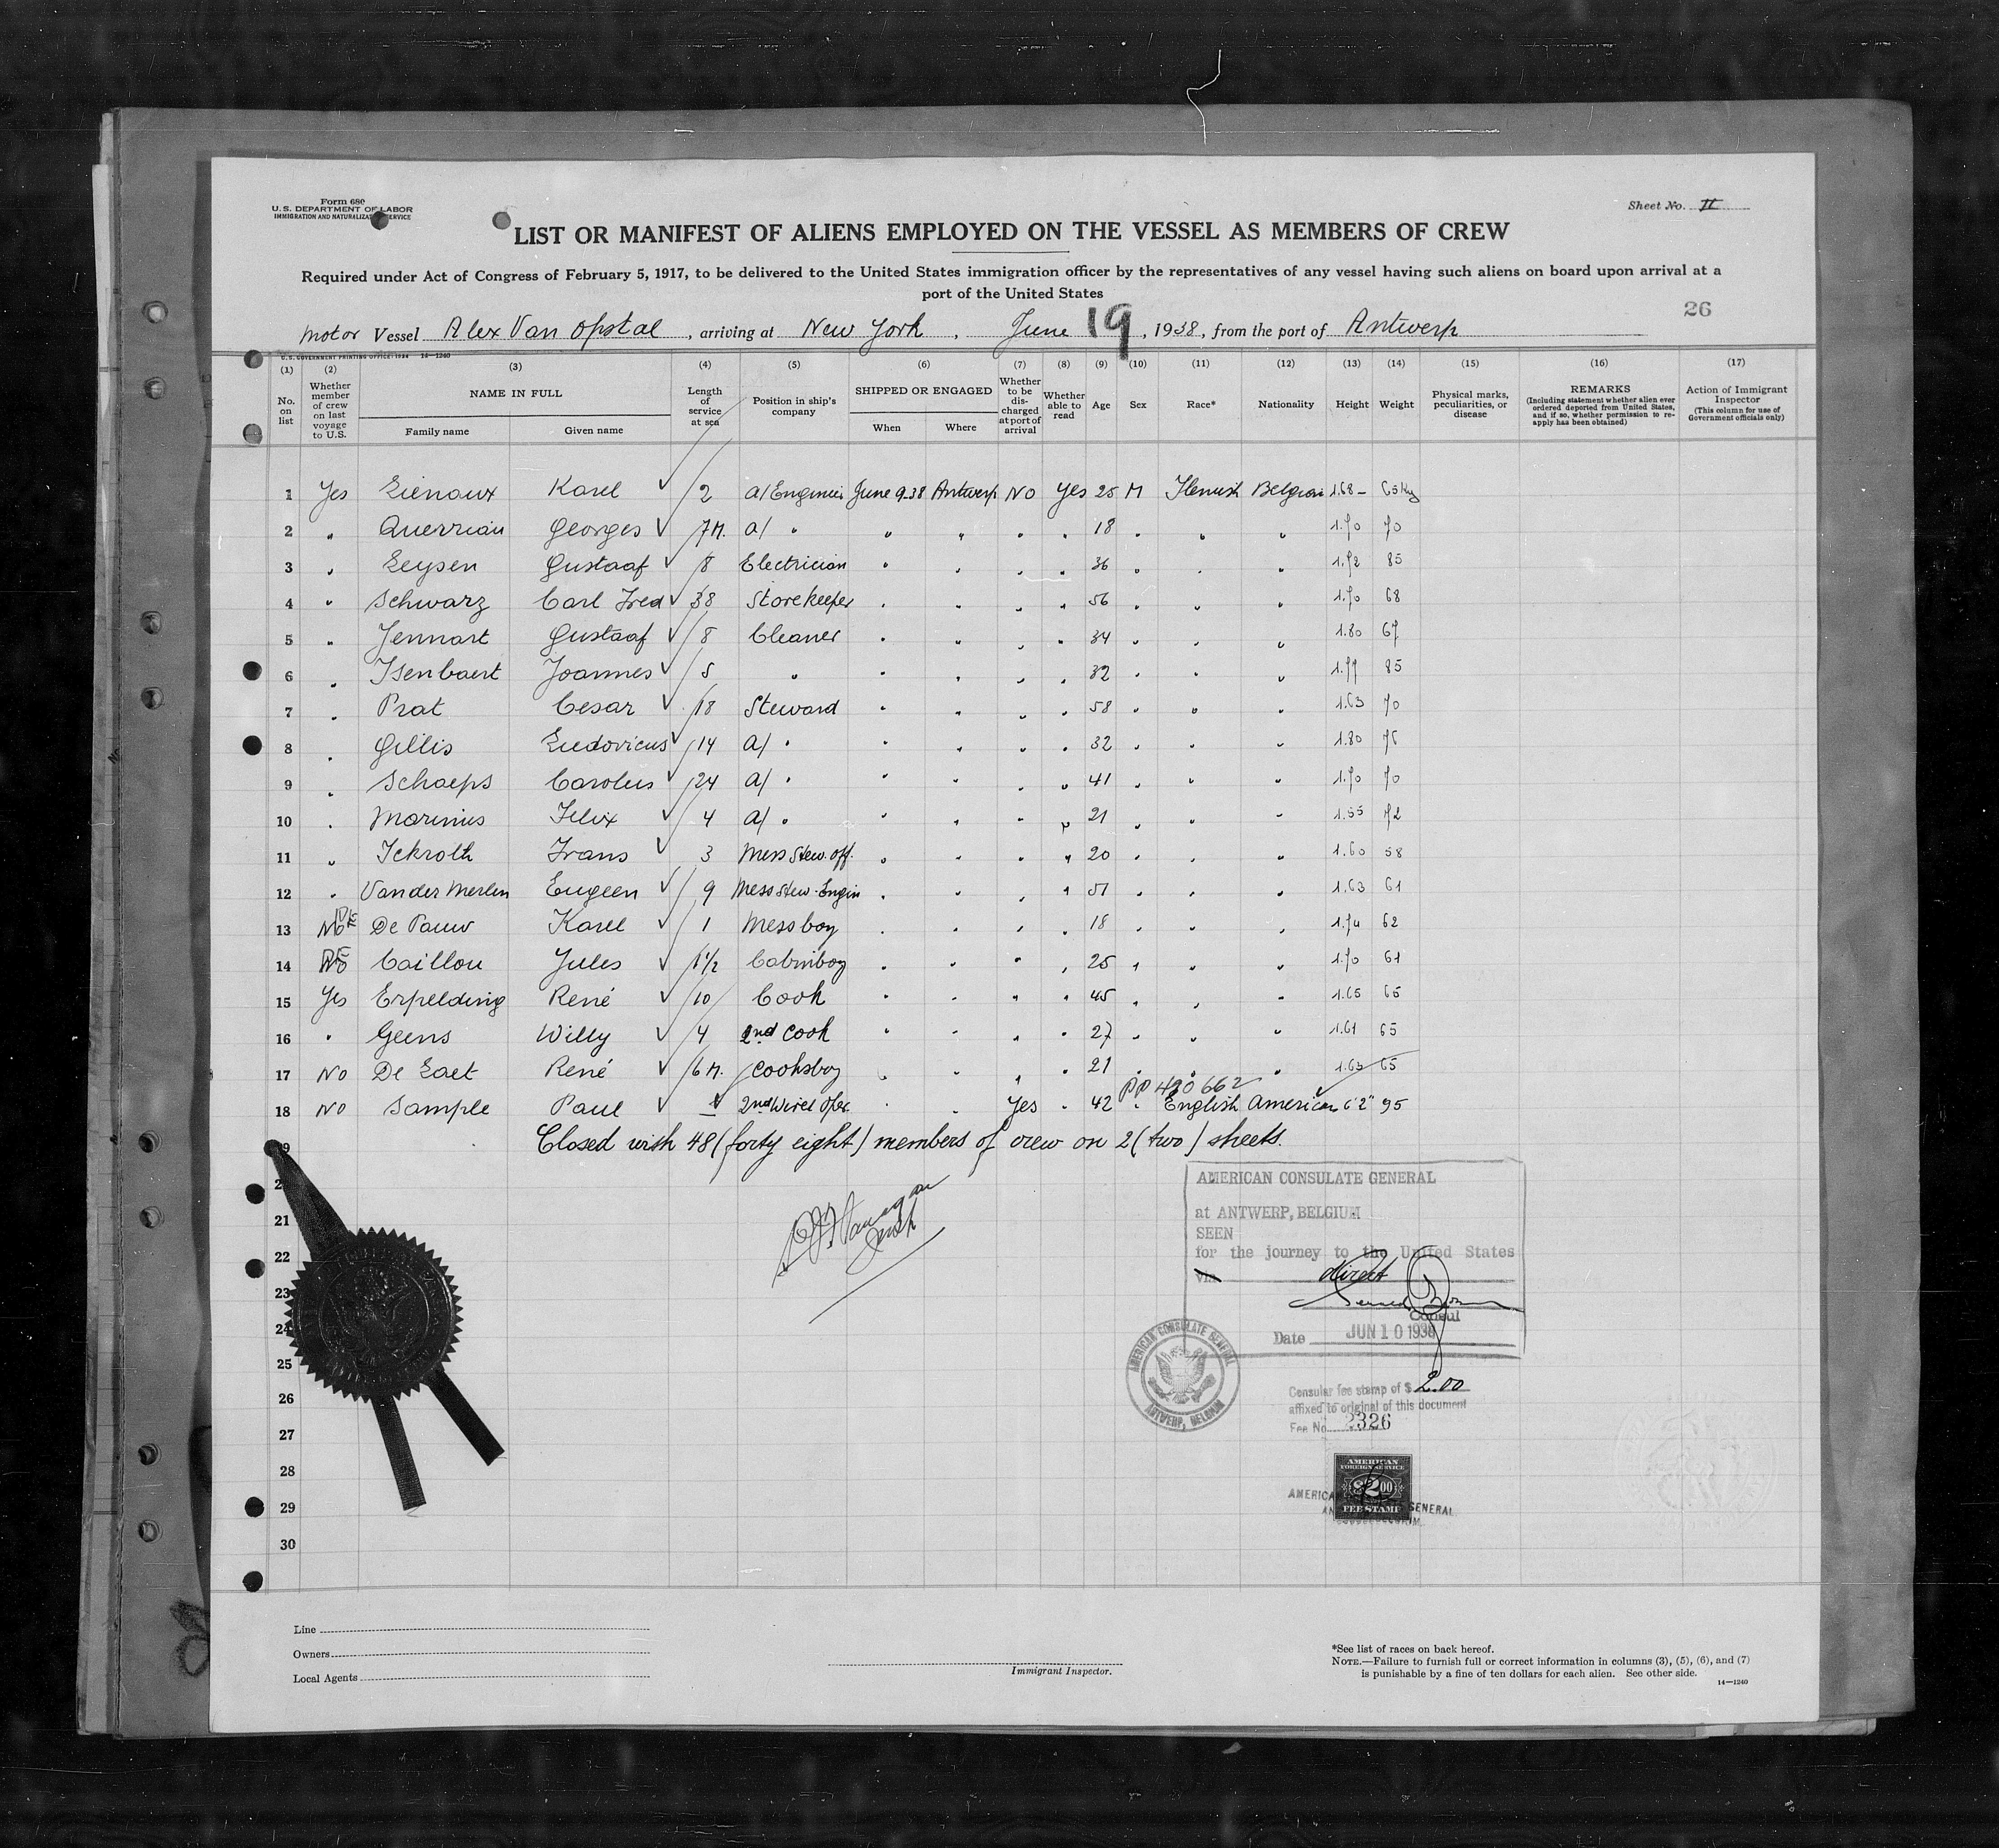 Form 680
U. S. DEPARTMENT OF LABOR
IMMIGRATION AND NATURALIZATION SERVICE
Sheet No. II
LIST OR MANIFEST OF ALIENS EMPLOYED ON THE VESSEL AS MEMBERS OF CREW
Required under Act of Congress of February 5, 1917, to be delivered to the United States immigration officer by the representatives of any vessel having such aliens on board upon arrival at a
port of the United States
26
motor Vessel Alex Van Opstal, arriving at New York, June 19, 1938, from the port of Antwerp
U. S. GOVERNMENT PRINTING OFFICE: 1934 14—1240
(1) (2) (3) (4) (5) (6) (7) (8) (9) (10) (11) (12) (13) (14) (15) (16) (17)
No. on list
Whether member of crew on last voyage to U.S.
NAME IN FULL
Family name Given name
Length of service at sea
Position in ship's company
SHIPPED OR ENGAGED
When Where
Whether to be discharged at port of arrival
Whether able to read
Age
Sex
Race*
Nationality
Height
Weight
Physical marks, peculiarities, or disease
REMARKS
(Including statement whether alien ever ordered deported from United States, and if so, whether permission to reapply has been obtained)
Action of Immigrant Inspector
(This column for use of Government officials only)
1 Yes Lienaux Karel 2 a/Engineer June 9.38 Antwerp No Yes 25 M Flemish Belgian 1.68 - 65 kg
2 " Querriau Georges 7M. a/ " " " " " 18 " " " 1.70 70
3 " Leysen Gustaaf 8 Electrician " " " " 36 " " " 1.72 85
4 " Schwarz Carl Fred 38 Storekeeper " " " " 56 " " " 1.70 68
5 " Jennart Gustaaf 8 Cleaner " " " " 34 " " " 1.80 67
6 " Isenbaert Joannes 5 " " " " " 32 " " " 1.77 85
7 " Prat Cesar 18 Steward " " " " 58 " " " 1.63 70
8 " Gillis Ludovicus 14 a/ " " " " " 32 " " " 1.80 75
9 " Schaeps Carolus 24 a/ " " " " " 41 " " " 1.70 70
10 " Marinus Felix 4 a/ " " " " " 21 " " " 1.55 72
11 " Ickroth Frans 3 Mess Stew. off. " " " " 20 " " " 1.60 58
12 " Van der Merlen Eugeen 9 Mess Stew. Engin " " " " 51 " " " 1.63 61
13 No De Pauw Karel 1 Messboy " " " " 18 " " " 1.74 62
14 No Caillou Jules 1½ Cabinboy " " " " 25 " " " 1.70 61
15 Yes Erpelding René 10 Cook " " " " 45 " " " 1.65 65
16 " Geens Willy 4 2nd Cook " " " " 27 " " " 1.61 65
17 No De Laet René 6 M. Cooksboy " " " " 21 " " " 1.63 65
PP 420662
18 No Sample Paul 2nd Wirel Oper. " " Yes " 42 " English American 6'2" 95
Closed with 48 (forty eight) members of crew on 2 (two) sheets.
21
22
23
24
25
26
27
28
29
30
AMERICAN CONSULATE GENERAL
at ANTWERP, BELGIUM
SEEN
for the journey to the United States
via direct
Consul
Date JUN 10 1938
AMERICAN CONSULATE GENERAL
ANTWERP, BELGIUM
Consular fee stamp of $ 2.00
affixed to original of this document
Fee No. 2326
AMERICAN
FOREIGN SERVICE
$2.00
FEE STAMP
Line
Owners
Local Agents
Immigrant Inspector.
*See list of races on back hereof.
NOTE.—Failure to furnish full or correct information in columns (3), (5), (6), and (7)
is punishable by a fine of ten dollars for each alien. See other side.
14—1240